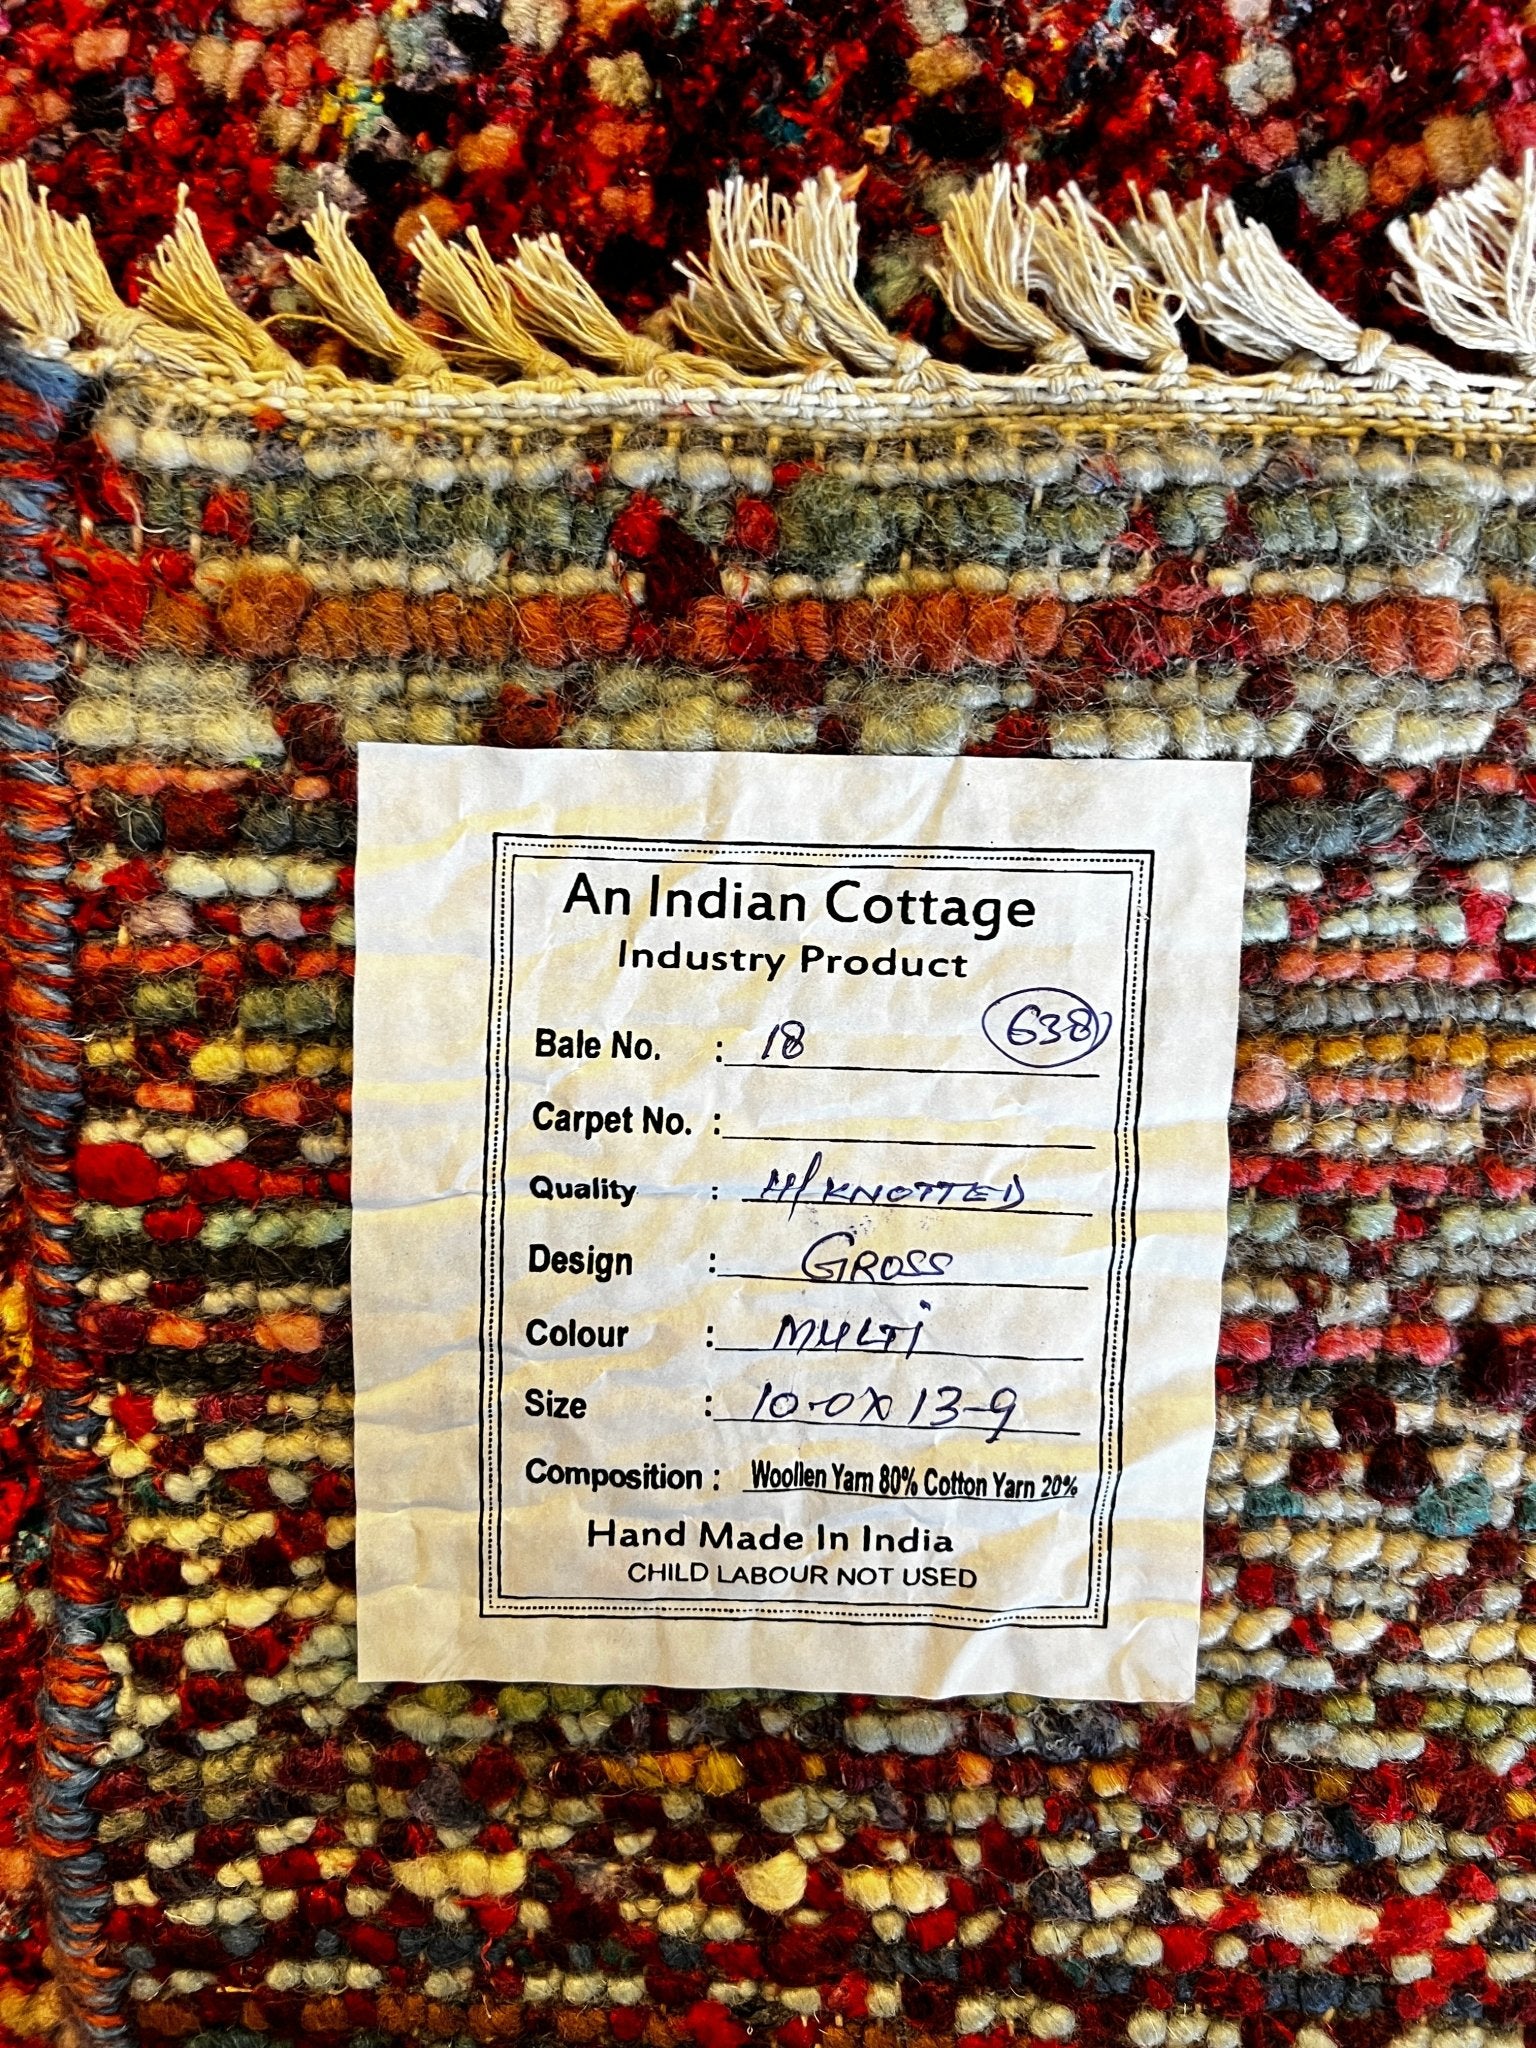 An Indian Cottage
Industry Product
Bale No. : 18 638
Carpet No. :
Quality : H/KNOTTED
Design : GROSS
Colour : MULTi
Size : 10-0X13-9
Composition : Woollen Yarn 80% Cotton Yarn 20%
Hand Made In India
CHILD LABOUR NOT USED